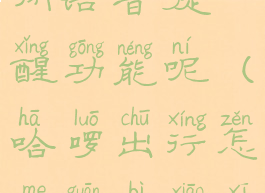 语音提
xǐng gōng néng ní
醒功能呢（
hā luō chū xíng zěn
哈啰出行怎
me guān bì xiāo xī